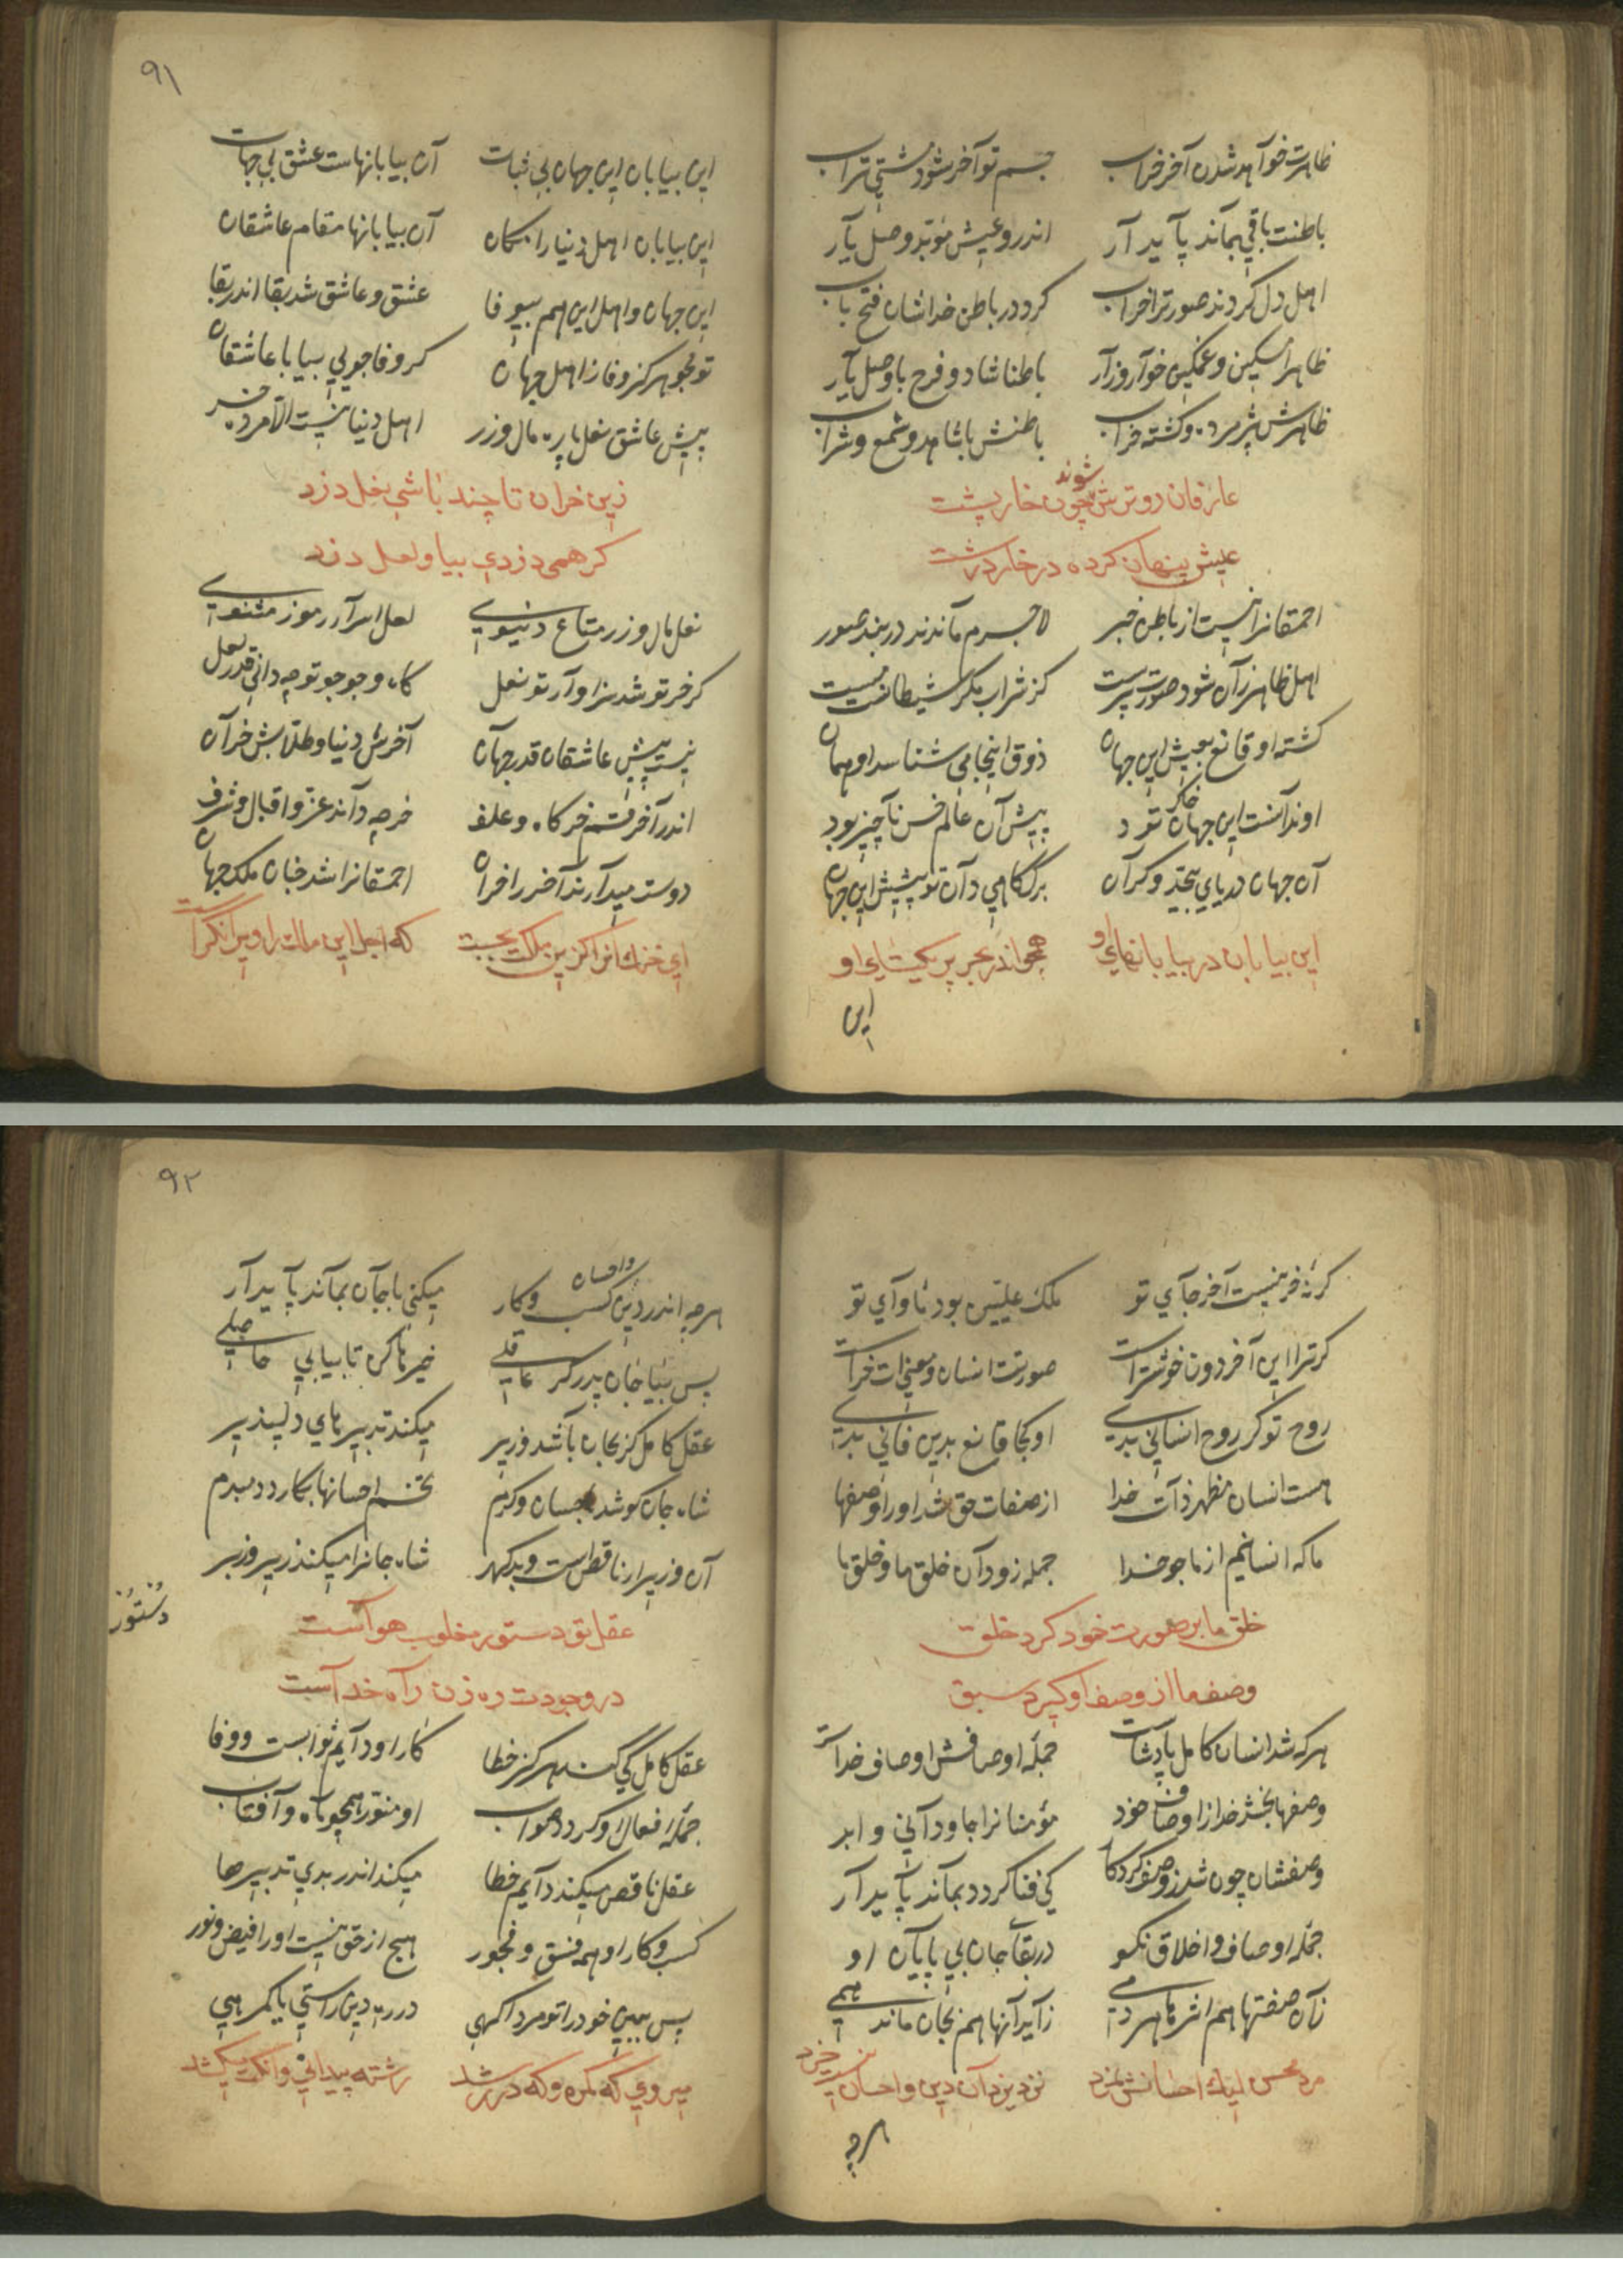 ظاهرت خوآهد شدن آخر خراب جسم تو آخر شود مشتی تراب
باطنت باقی بمآند پآیدآر اندرو عیش مؤبّد وصل یآر
اهل دل کردند صورترا خراب کرد در باطن خداشان فتح باب
ظاهرا مسکین و غمکین خوآر و زآر باطنا شاد و فرح باوصل یآر
ظاهرش پژمرده و کشته خراب باطنش با شاهد و شمع و شراب
عارفان روترش شوند چون خارپشت
عیش پنهان کرده در خار درشت
احمقانرا نیست از باطن خبر لاجرم مآندند در بند صور
اهل ظاهر زآن شود صورت پرست کز شراب مکر شیطانست مست
کشته او قانع بعیش این جهان ذوق اینجا می شناسد او همان
او ندآنست این جهان خاکی تود پیش آن عالم خس نآچیز بود
آن جهان دریای بیحدّ و کرآن برک کاهی دآن تو پیشش این جهان
این بیابان در بیابانهای او همچو اندر بحر پر یکتای او
این
٩١
این بیابان این جهان بی ثبات آن بیابانهاست عشق بی جهات
این بیابان اهل دنیا را مکان آن بیابانها مقام عاشقان
این جهان و اهل این هم بیوفا عشق و عاشق شد بقا اندر بقا
تو مجو هرکز وفا ز اهل جهان کر وفا جویی بیا با عاشقان
پیش عاشق نعل پاره مال و زر اهل دنیا نیست الّا مرد خر
زین خران تا چند باشی نعل دزد
کر همی دزدی بیا و لعل دزد
نعل مال و زر متاع دنیوی لعل اسرآر رموز مثنوی
کر خر تو شد سزاوآر تو نعل کاه و جو جو تو چه دانی قدر لعل
نیست پیش عاشقان قدر جهآن آخرش دنیا و طلّابش خرآن
اندر آخر قسم خر کاه و علف خر چه دآند عزّ و اقبال و شرف
دوست میدآرند آخر را خران احمقانرا شد خبان ملک جهان
ای خنک آنرا کزین ملکت بجست که اجل این ملک را ویرانکرست
کر نه خر نیست آخر جآی تو ملک علیین بود مأوآی تو
کر ترا این آخر دون خوشترآست صورتت انسان و معنی‌ات خرآست
روح تو کر روح انسانی بدی او کجا قانع بدین فانی بدی
هست انسان مظهر ذآت خدا از صفات حق شد او را وصفها
ما که انسانیم از ما جو خدا جمله زو دآن خلق ما و خلق ما
خلق ما بر صورت خود کرد خلق
وصف ما از وصف او کیرد سبق
هر که شد انسان کامل پآدشاست جمله اوصافش اوصاف خدآست
وصفها بخشد خدا از اوصاف خود مؤمنانرا جاودآنی و ابد
وصفشان چون شد ز وصف کردکار کی فنا کردد بمآند پآیدآر
جمله اوصاف و اخلاق نکو در بقآ جان بی پآیآن او
زآن صفتها هم اثرها هر دمی زآید آنها هم نجان ماند همی
مرد محسن لیک احسانش نمرد نزد یزدآن دین و احسان نیست خرد
هرچه
٩٢
هرچه اندر دین کسب و احسان و کار میکنی با جآن بمآند پآیدآر
پس بیا جان پدر کر عاقلی خیرها کن تا بیابی حاصلی
عقل کامل کز بجان بآشد وزیر میکند تدبیرهای دلپذیر
شاه جان کوشد باحسان و کرم تخم احسانها بکارد دمبدم
آن وزیر ار ناقص است و بدکهر شاه جانرا میکند زیر و زبر
دُسْتُوُر
عقل تو دستور مغلوب هوآست
در وجودت ره زن رآه خدآست
عقل کامل کی کند هرکز خطا کار او دآیم ثوابست و وفا
جمله افعال او کردد صواب او منوّر همچو ماه و آفتاب
عقل ناقص میکند دآیم خطا میکند اندر بدی تدبیرها
کسب و کار او همه فسق و فجور هیچ از حق نیست او را فیض و نور
پس ببین خود را تو مرد آکهی در ره دین راستی یا کمرهی
میروی که کمره و که در رشد رشته پیدانی و آنکت میکشد